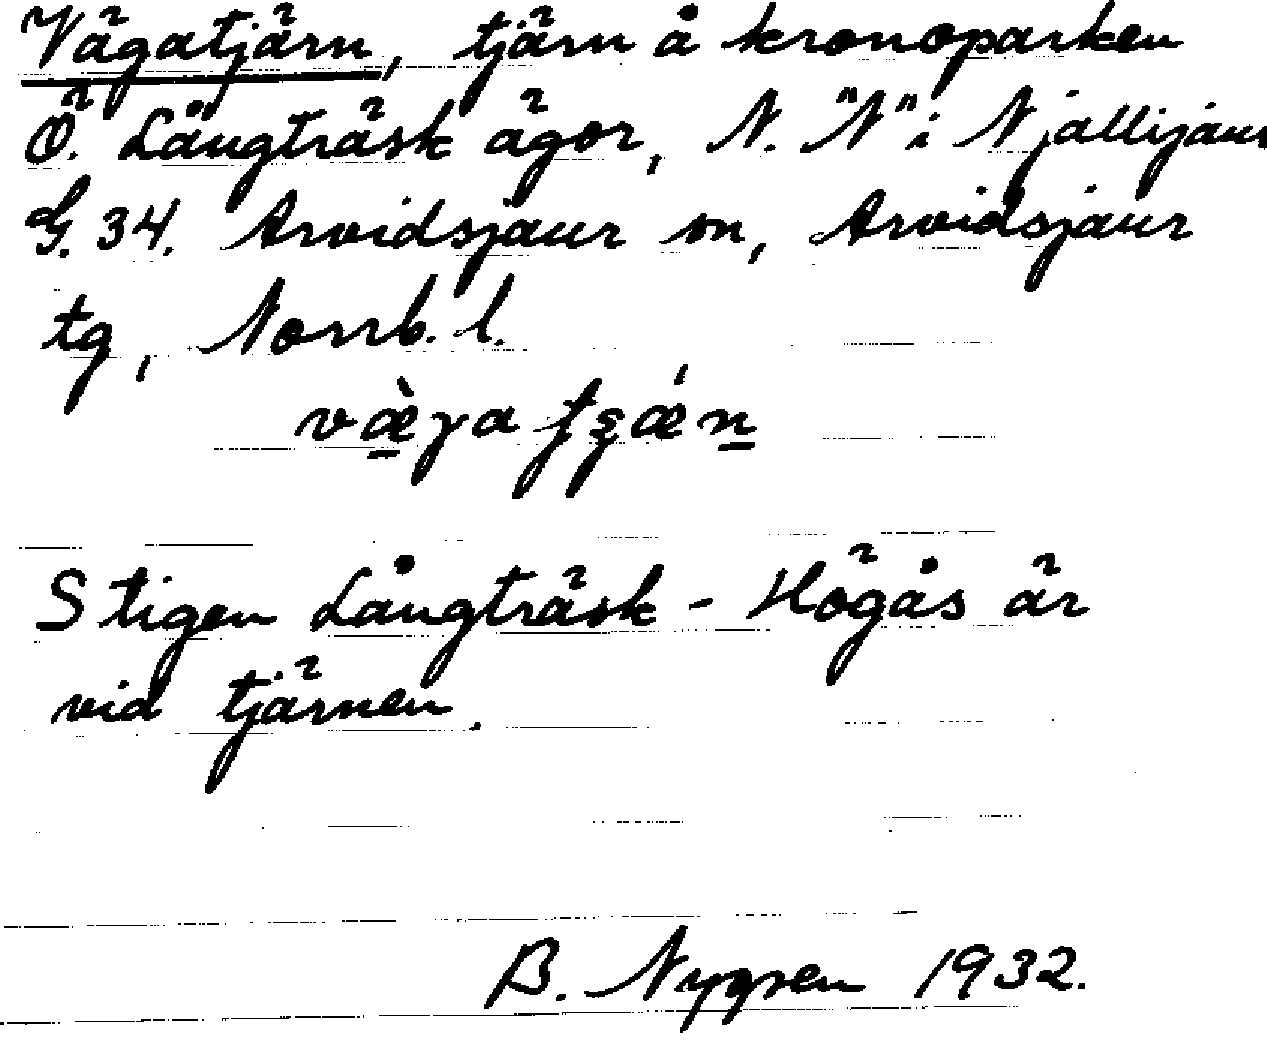 Vägatjärn, tjärn å kronoparken
Ö. Långträsk ägor, N. "N" i Njallijaur
G. 34. Arvidsjaur sn, Arvidsjaur
tg, Norrb. l.
væ̀ɣa tʂǽn
Stigen Långträsk - Högås är
vid tjärnen.
B. Nygren 1932.